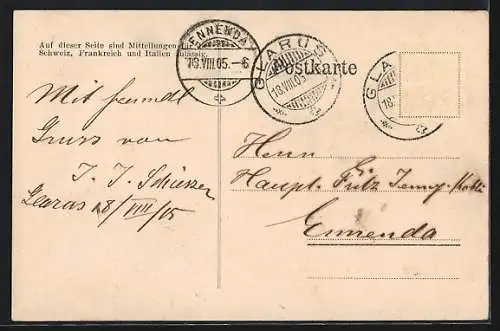 Auf dieser Seite sind Mitteilungen
Schweiz, Frankreich und Italien zulässig.
ENNENDA
18.VIII.05.-6
GLARUS
18.VIII.05
Postkarte
GLA
18.
Mit freundl
Gruss von
J. J. Schiesser
Glarus 18/VIII/05
Herrn
Haupt. Fritz Jenny
Ennenda